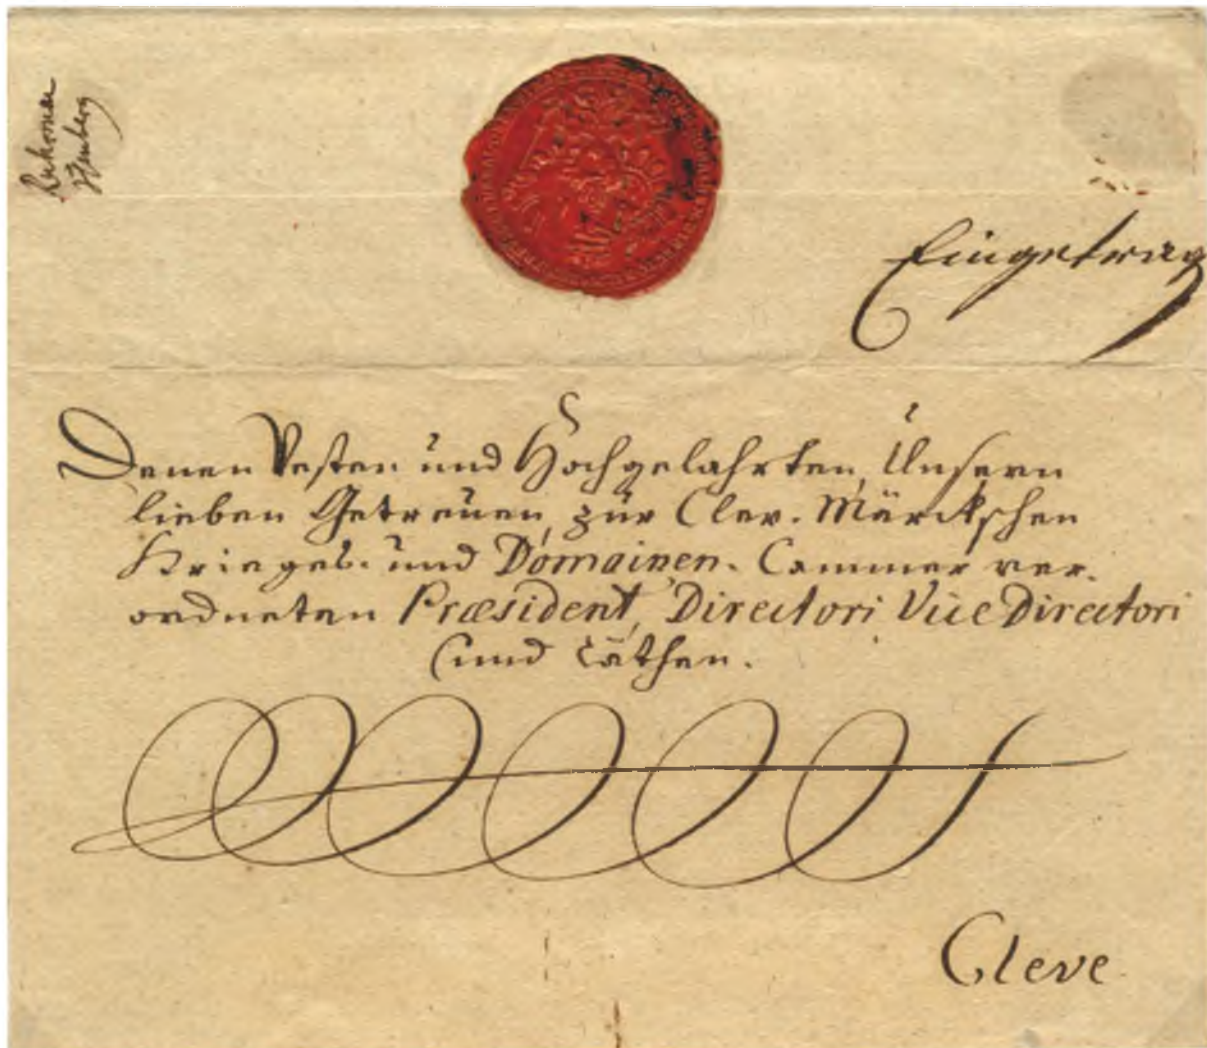 Eingetrag
Denen Vesten und Hochgelahrten, Unsern
lieben Getreuen, zur Clev. Märckschen
Krieges- und Domainen-Cammer ver-
ordneten Præsident, Directori Vice Directori
und Räthen.
Cleve